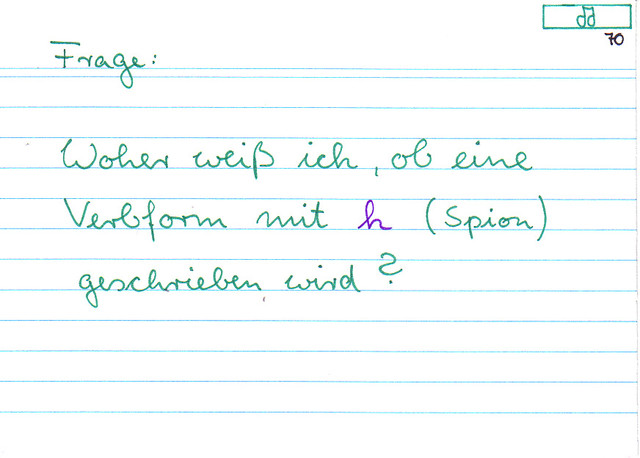 70
Frage:
Woher weiß ich, ob eine
Verbform mit h (Spion)
geschrieben wird?